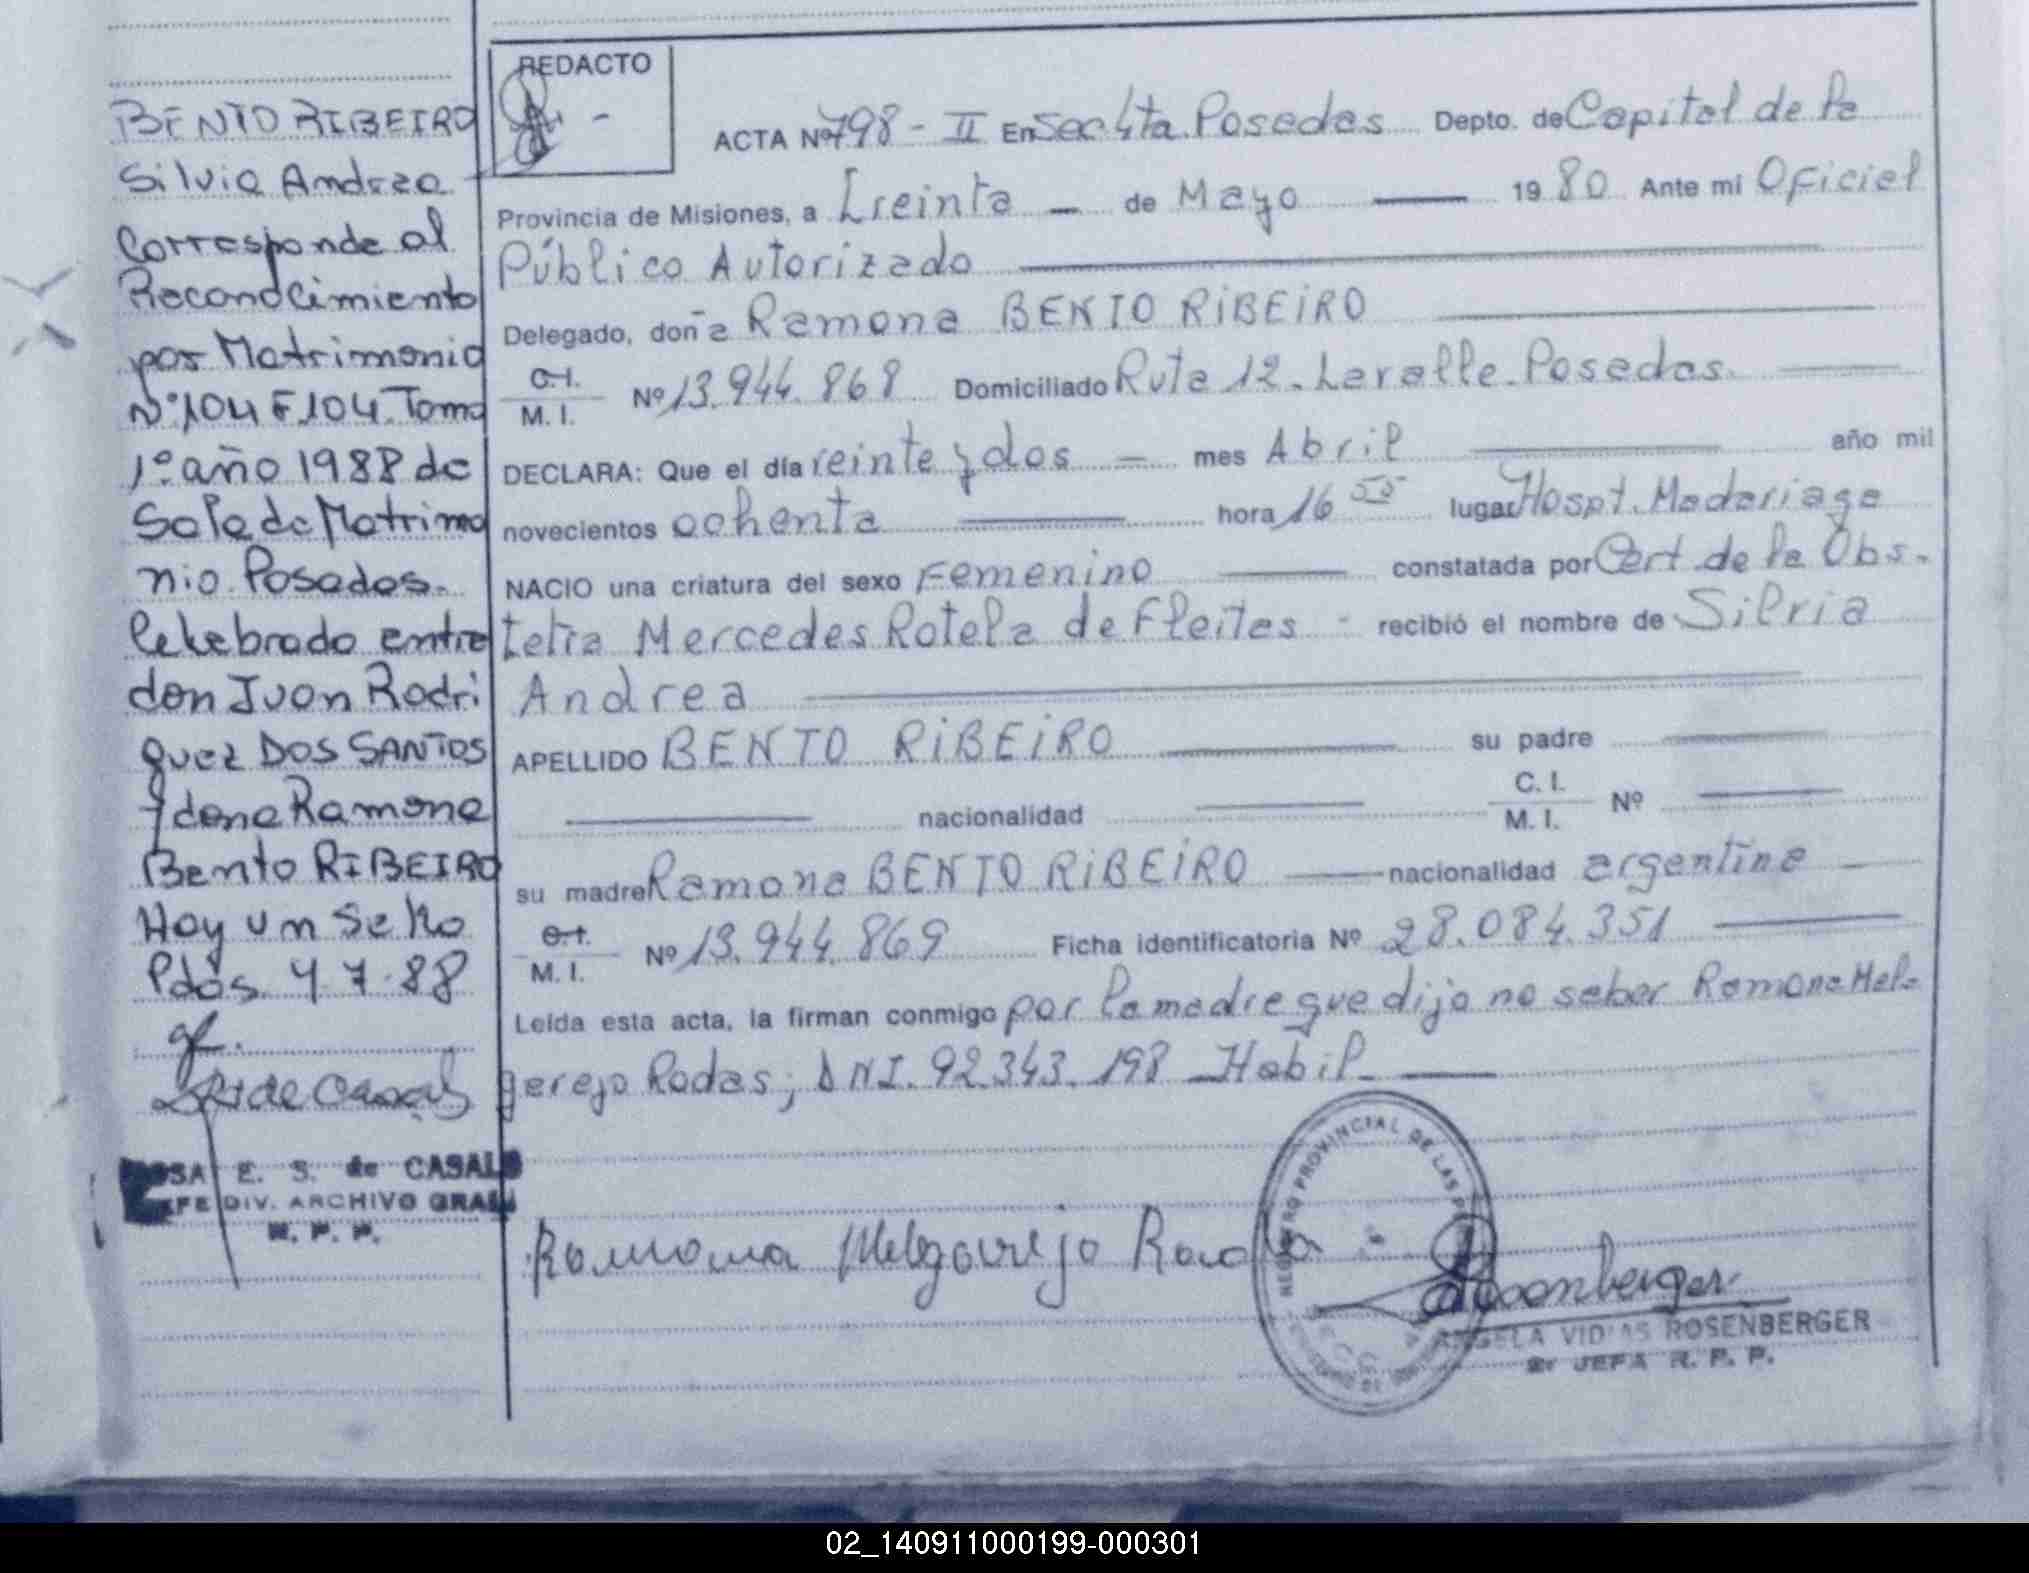 BENTO RIBEIRO
Silvia Andrea
Corresponde al
Reconocimiento
por Matrimonio
Nº 104 F 104. Tomo
1º año 1988 de
Sala de Matrimo
nio. Posadas.
Celebrado entre
don Juan Rodri
guez DOS SANTOS
y dona Ramona
Bento RIBEIRO
Hay un Sello
Pdas. 4.7.88
ROSA E. S. de CASALS
JEFE DIV. ARCHIVO GRAL
R. P. P.
REDACTO
ACTA Nº 798 - II En Sec 4ta. Posadas Depto. de Capital de la
Provincia de Misiones, a treinta - de Mayo 1980 Ante mi Oficial
Público Autorizado
Delegado, doña Ramona BENTO RIBEIRO
C.I. M.I. Nº 13.944.868 Domiciliado Ruta 12. Laralle. Posadas.
DECLARA: Que el día veinte y dos - mes Abril año mil
novecientos ochenta hora 16 55 lugar Hospt. Madariaga
NACIO una criatura del sexo Femenino constatada por Cert. de la Obs-
tetra Mercedes Rotela de Fleitas - recibió el nombre de Silvia
Andrea
APELLIDO BENTO RIBEIRO su padre
nacionalidad C. I. M. I. Nº
su madre Ramona BENTO RIBEIRO nacionalidad argentina
C.I. M. I. Nº 13.944.869 Ficha identificatoria Nº 28.084.351
Leída esta acta, la firman conmigo por la madre que dijo no saber Ramona Mel-
garejo Rodas; DNI. 92.343.198 Habil
Ramona Melgarejo Roda
REGISTRO PROVINCIAL DE LAS
Rosenberger
ANGELA VIDIAS ROSENBERGER
JEFA R. P. P.
02_140911000199-000301